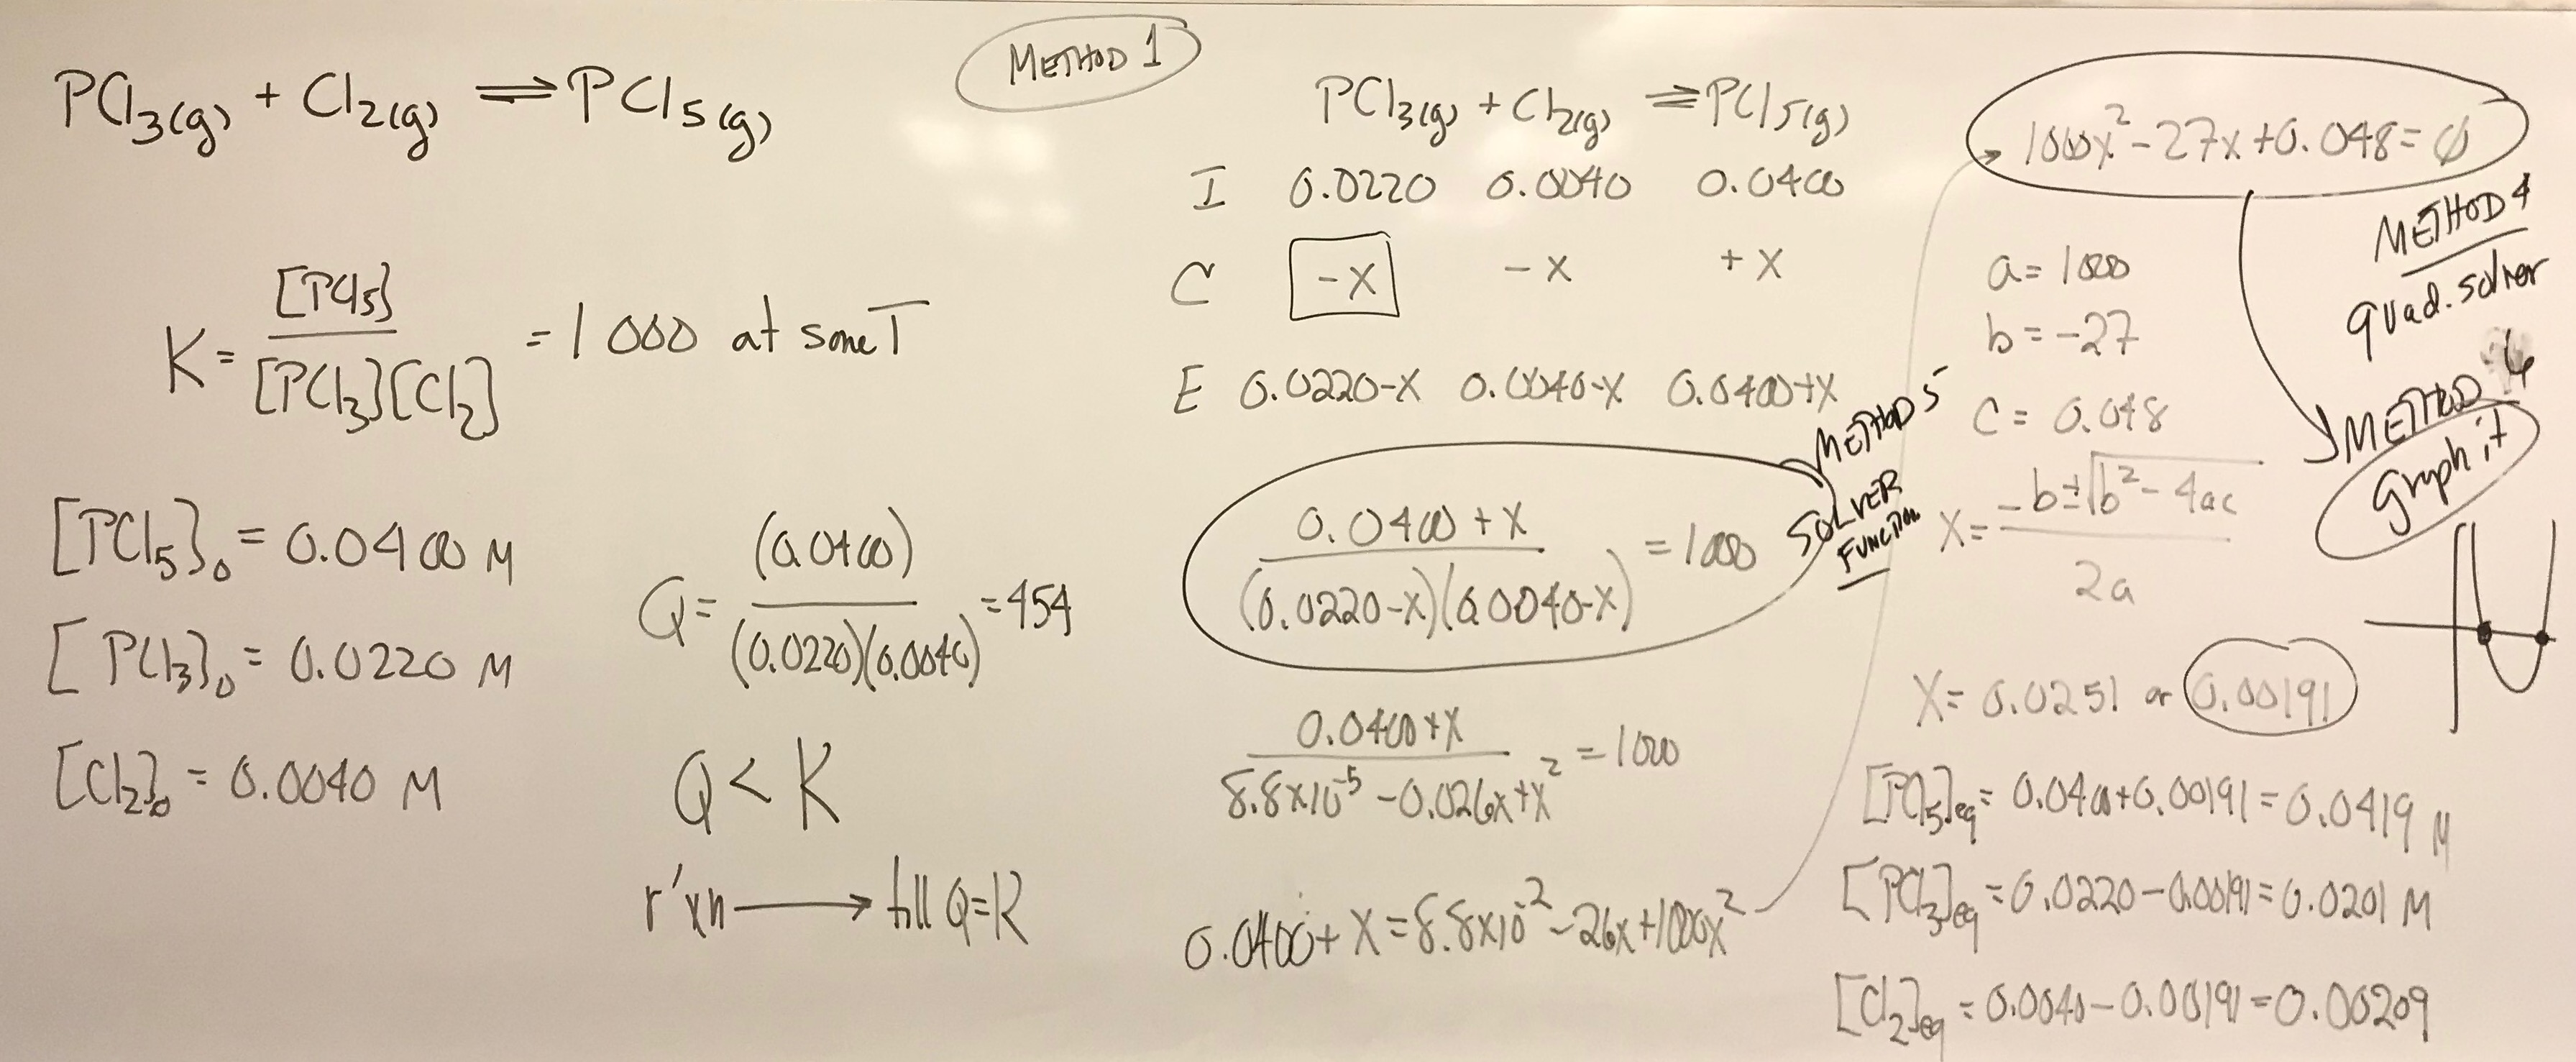 PCl3(g) + Cl2(g) ⇌ PCl5(g)
K = [PCl5] / [PCl3][Cl2] = 1000 at some T
[PCl5]0 = 0.0400 M
[PCl3]0 = 0.0220 M
[Cl2]0 = 0.0040 M
Q = (0.0400) / (0.0220)(0.0040) = 454
Q < K
r'xn → till Q=K
METHOD 1
PCl3(g) + Cl2(g) ⇌ PCl5(g)
I 0.0220 0.0040 0.0400
C -X -X +X
E 0.0220-X 0.0040-X 0.0400+X
0.0400 + X / (0.0220-X)(0.0040-X) = 1000
METHOD 5
SOLVER
FUNCTION
0.0400+X / 8.8x10^-5 - 0.026x + x^2 = 1000
0.0400 + X = 8.8x10^-2 - 26x + 1000x^2
1000x^2 - 27x + 0.048 = ∅
METHOD 4
quad. solver
a = 1000
b = -27
c = 0.048
METHOD 6
Graph it
X = -b ± √b^2 - 4ac / 2a
X = 0.0251 or 0.00191
[PCl5]eq = 0.0400 + 0.00191 = 0.0419 M
[PCl3]eq = 0.0220 - 0.00191 = 0.0201 M
[Cl2]eq = 0.0040 - 0.00191 = 0.00209